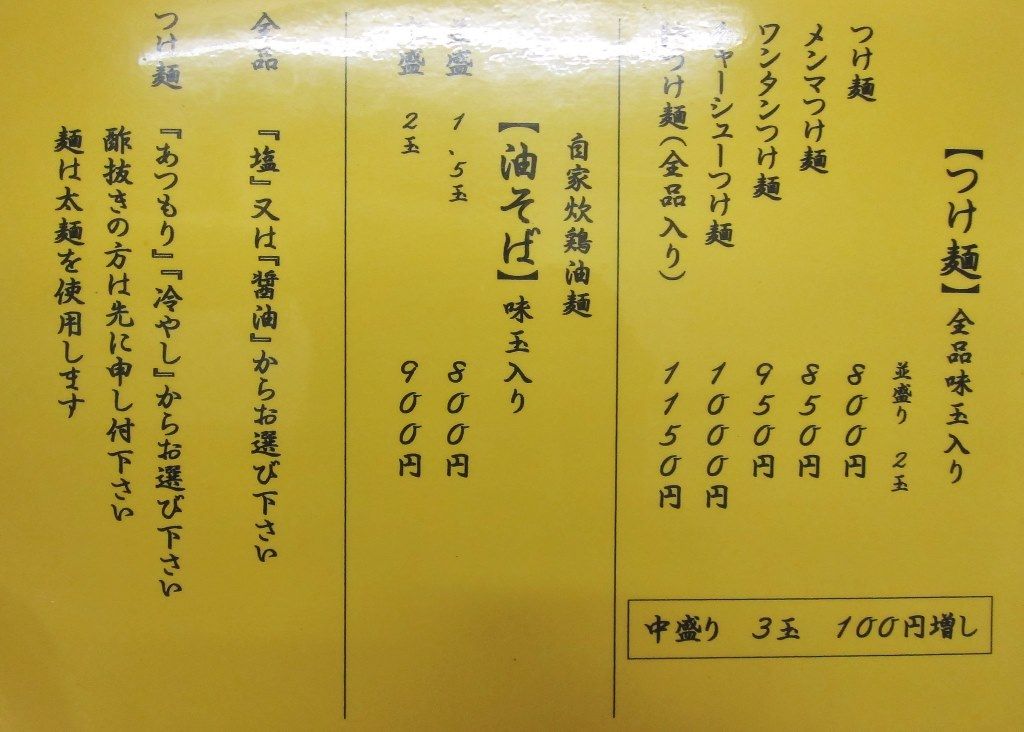 【つけ麺】全品味玉入り
並盛り 2玉
つけ麺 800円
メンマつけ麺 850円
ワンタンつけ麺 950円
チャーシューつけ麺 1000円
つけ麺(全品入り) 1150円
中盛り 3玉 100円増し
自家炊鶏油麺
【油そば】味玉入り
並盛 1.5玉 800円
盛 2玉 900円
全品 『塩』又は『醤油』からお選び下さい
つけ麺 『あつもり』『冷やし』からお選び下さい
酢抜きの方は先に申し付下さい
麺は太麺を使用します